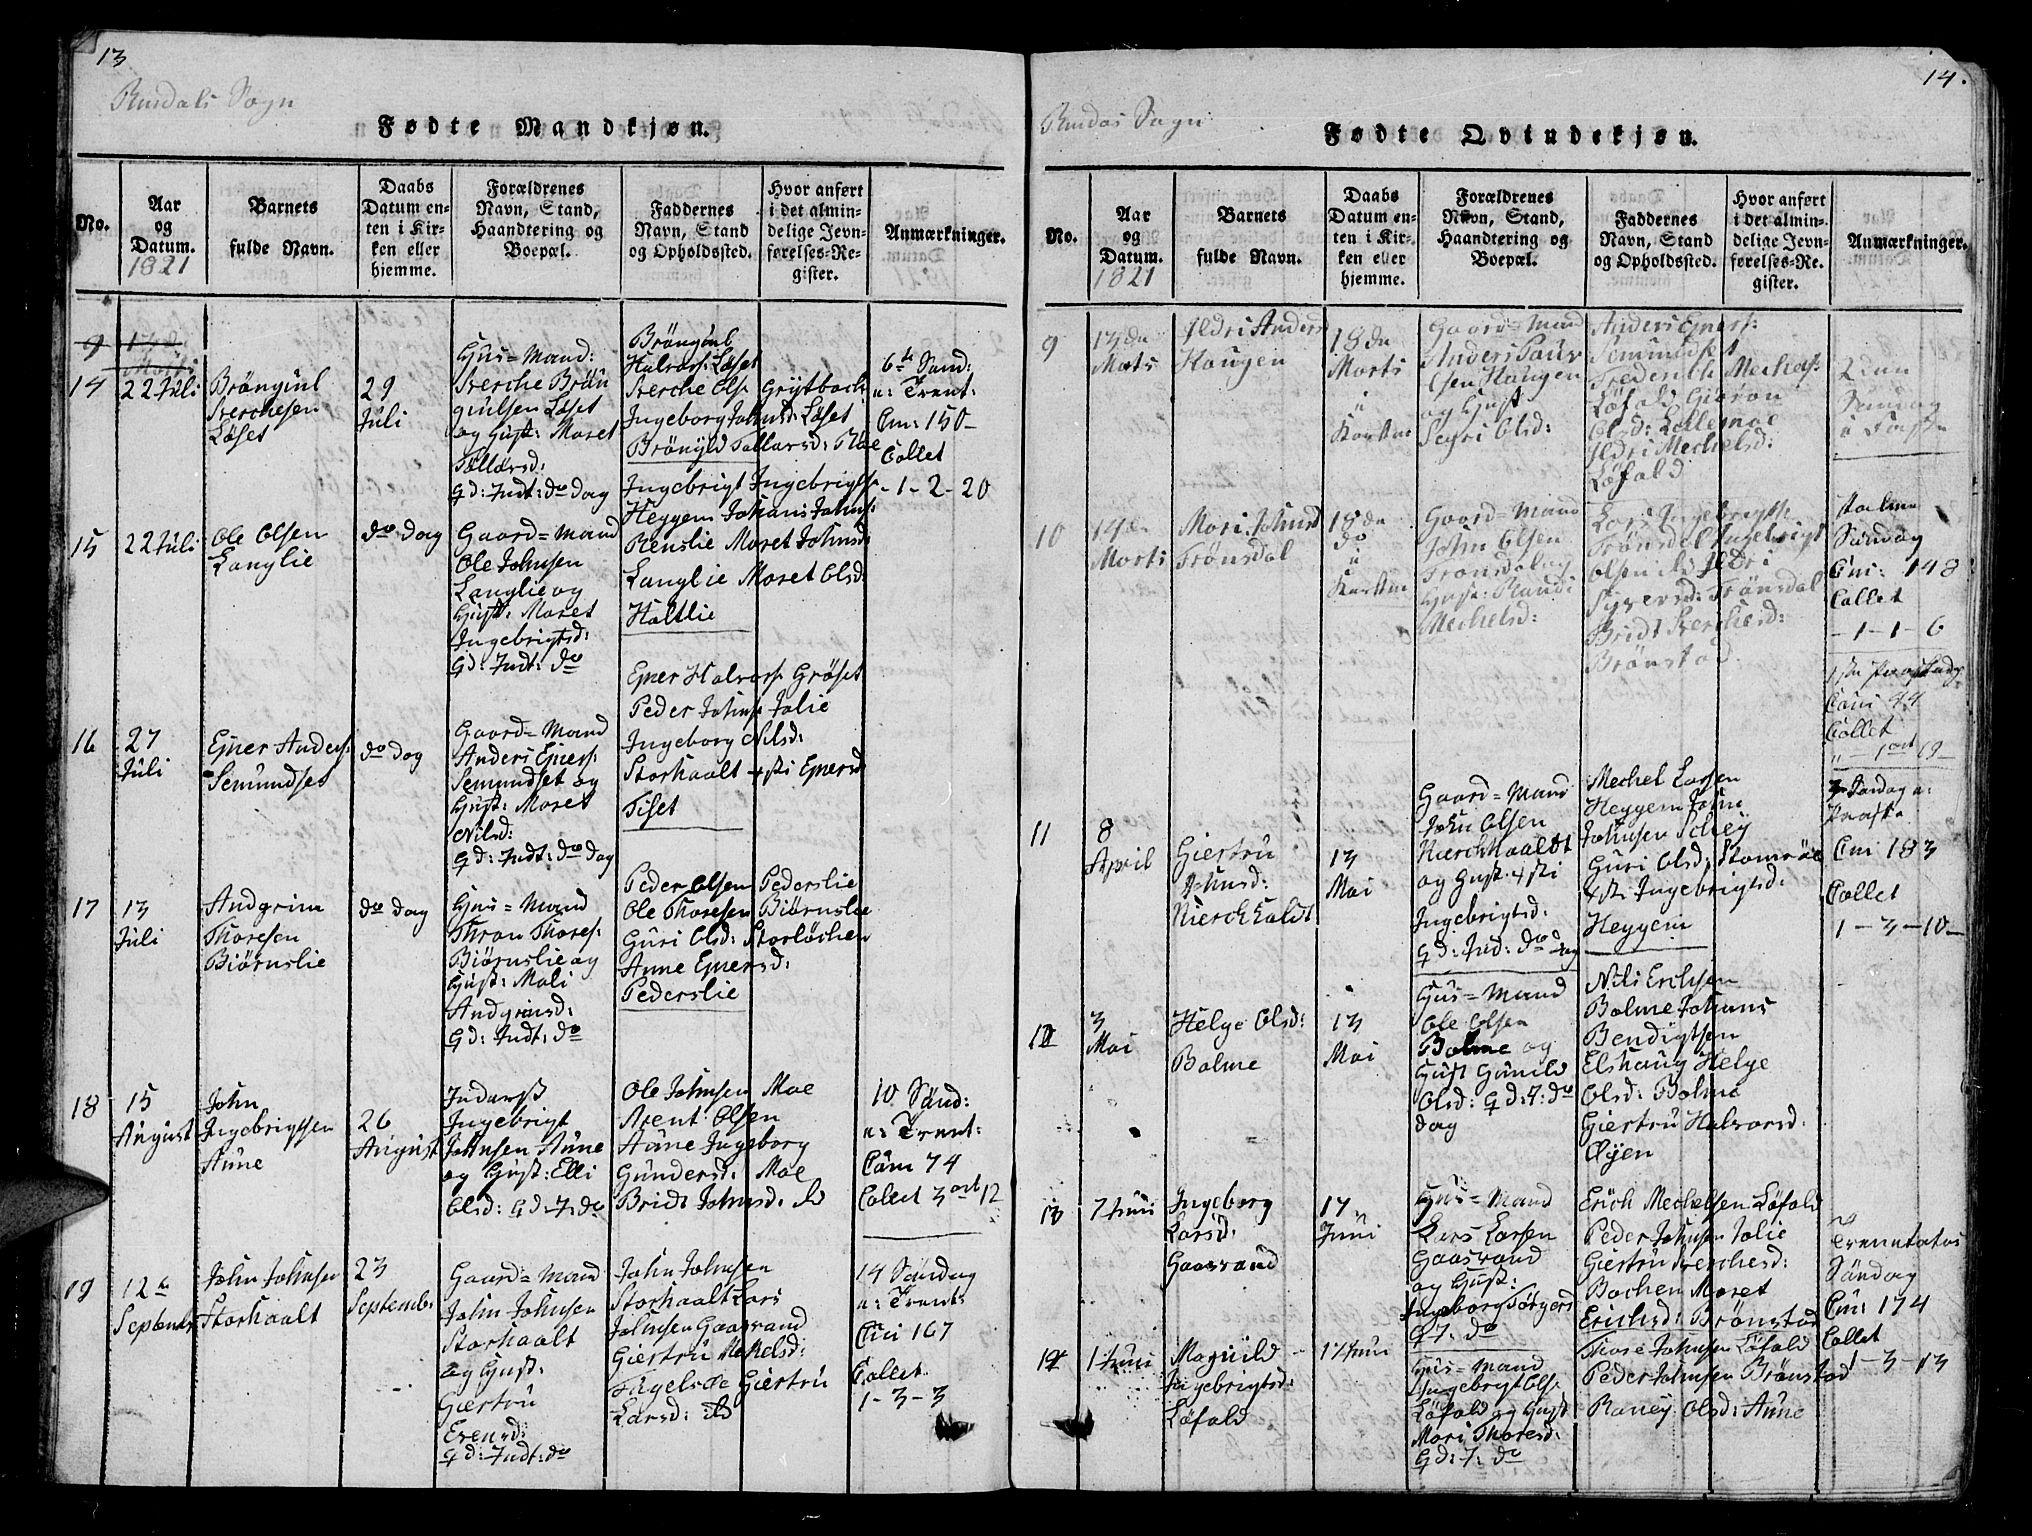 13
Rindals Sogn
Fødte Mandkjøn.
No.
Aar
og
Datum.
1821
Barnets
fulde Navn.
Daabs
Datum en-
ten i Kir-
ken eller
hjemme.
Forældrenes
Navn, Stand,
Haandtering og
Boepæl.
Faddernes
Navn, Stand
og Opholdssted.
Hvor anført
i det almin-
delige Jevn-
førelses-Re-
gister.
Anmærkninger.
14
22 Juli
Bröngiul
Sverchesen
Löset
29
Juli
Huus=Mand:
Sverche Brön
giulsen Löset
og Hust: Maret
Tollorsd:
Gd: Indt: do dag
Bröngiul
Halvors: Löset
Sverche Ols: Grytbach
Ingeborg Johnsd: Löset
Brönyld Tollorsd: Roe
6te Sønd:
a: Trent:
Cm: 150
Collet
-1-2-20
15
22 Juli
Ole Olsen
Langlie
do dag
Gaard=Mand
Ole Johnsen
Langlie og
Hust: Maret
Ingebrigtsd:
Gd: Indt: do
Ingebrigt Ingebrigts:
Heggem Johans Johns:
Renslie Maret Johnsd:
Langlie Maret Olsd:
Holtlie
16
27
Juli
Ejner Anders:
Semundset
do dag
Gaard=Mand
Anders Ejners:
Semundset og
Hust: Maret
Nilsd:
Gd: Indt: do dag
Ejner Halvors: Gröset
Peder Johns: Jolie
Ingeborg Nilsd:
Storhaalt Ejnersd
Tiset
17
13
Juli
Andgrim
Thoresen
Biörnslie
do dag
Huus=Mand
Thron Thores:
Biörnslie og
Hust: Mali
Andgrimsd:
Gd: Indt: do
Peder Olsen Pederslie
Ole Thoresen Biörnslie
Guri Olsd: Storløchen
Anne Ejnersd:
Pederslie
18
15
August
John
Ingebrigtsen
Aune
26
August
Inderst
Ingebrigt
Johnsen Aune
og Hust: Elli
Olsd: Gd: I: do
Ole Johnsen Moe
Arent Olsen
Aune Ingeborg
Gundersd: Moe
Bridt Johnsd: do
10 Sønd:
a: Trent:
Com 74
Collet 3 ort 12
19
12te
Septembr
John Johnsen
Storhaalt
23
Septembr
Gaard=Mand
John Johnsen
Storhaalt
og Hust:
Giertru
Evensd:
Gd: Indt: do
John Johnsen
Storhaalt Lars
Johnsen Gaasvand
Giertru Mekelsd:
Fugelsöe Giertru
Larsd: do
14 Søndag
a: Trent:
Cm 167
Collet
1-3-3
14.
Rindals Sogn
Fødte Qvindekjøn.
No.
Aar
og
Datum.
1821
Barnets
fulde Navn.
Daabs
Datum en-
ten i Kir-
ken eller
hjemme.
Forældrenes
Navn, Stand,
Haandtering og
Boepæl.
Faddernes
Navn, Stand
og Opholdssted.
Hvor anført
i det almin-
delige Jevn-
førelses-Re-
gister.
Anmærkninger.
9
13de
Marts
Ildri Anders
Haugen
18de
Marts
Gaard=Mand
Anders
Haugen
og Hust
Sigri Olsd:
Anders Ejners:
Semundset
Frederich Mechels:
Löfald
Olsd: Lillemoe
Ildri Mechelsd:
Löfald
2den
Søndag
i Faste
10
14de
Marts
Mari Johnsd
Trönsdal
18de
do
Gaard=Mand
John Olsen
Trönsdal og
Hust: Randi
Mechelsd:
Lars Ingebrigts:
Trönsdal Ingebrigt
Olsen do Ildri
Syversd: Trönsdal
Bridt Sverchesd:
Brönstad
Palme
Søndag
Cm: 148
Collet
-1-1-6
Com 44
Collet
11
8
April
Giertru
Johnsd:
Kierchholdt
13
Mai
Gaard=Mand
John Olsen
Kierchhaaldt
og Hust:
Ingebrigtsd:
Gd: Ind: do dag
Mechel Larsen
Heggem John
Johnsen Schey
Guri Olsd: Stomröe
Ingebrigtsd:
Heggem
3 Søndag a:
Paaske
Cm 183
Collet
1-3-10
12
3
Mai
Helge Olsd:
Bolme
13
Mai
Huus=Mand
Ole Olsen
Bolme og
Hust Gunild
Olsd: Gd: I: do
dag
Nils Erichsen
Bolme Johans
Bendigtsen
Elshaug Helge
Olsd: Bolme
Giertru Halvorsd:
Øyen
13
7 Juni
Ingeborg
Larsd:
Gaasvand
17
Juni
Huus=Mand
Lars Larsen
Gaasvand
og Hust:
Ingeborg Törgersd
G I: do
Erich Mechelsen Löfald
Peder Johnsen Jolie
Giertru Sverchesd:
Bachen Maret
Erichsd: Brönstad
Trenitatis
Søndag
Cm: 174
Collet
1-3-13
14
1 Juni
Magnild
Ingebrigtsd:
Löfald
17 Juni
Huus=Mand
Ingebrigt Ols:
Löfald og Hust
Mari Thoresd:
Gd: I: do
Thore Johnsen Löfald
Peder Johnsen Brönstad
Raney Olsd: Aune